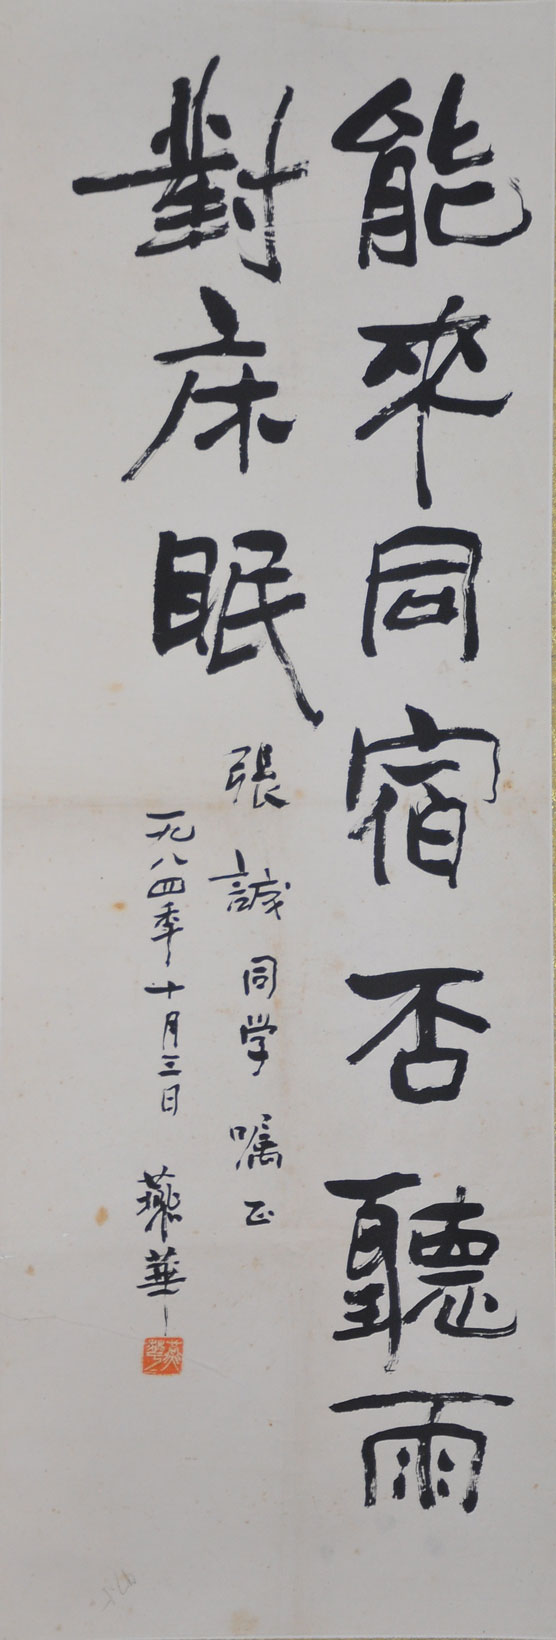 能來同宿否聽雨
對床眠
張誠同学嘱正
一九八四季十月三日 燕華
燕華